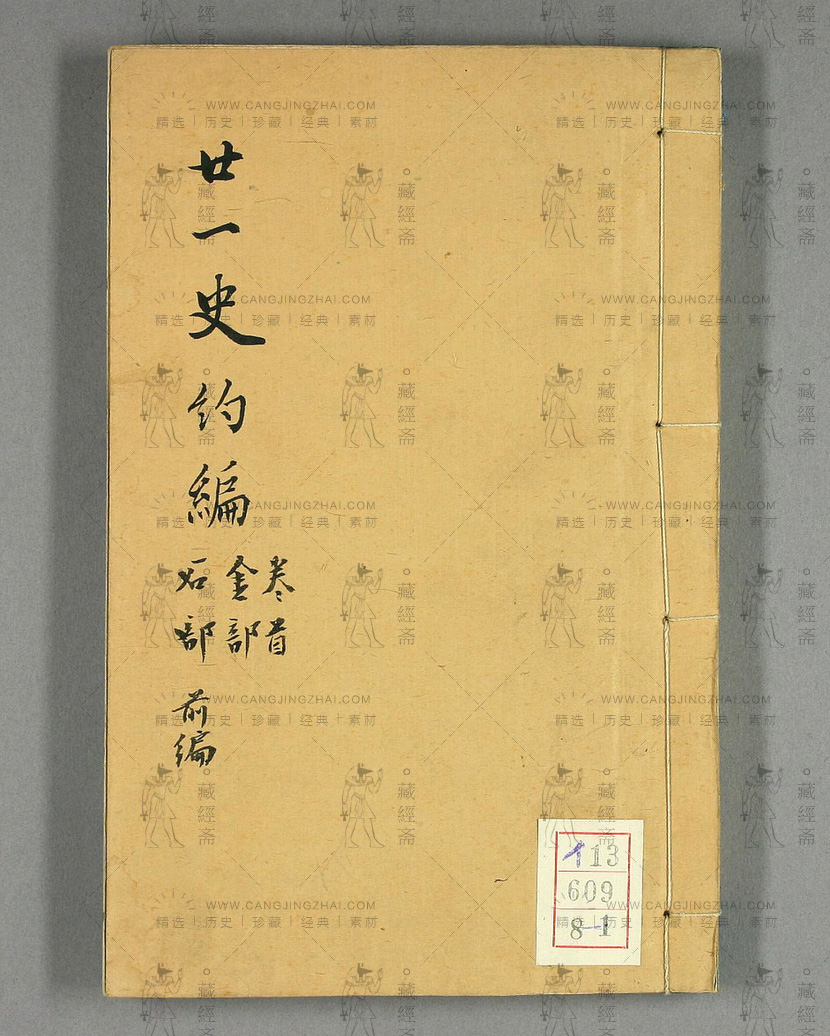 廿一史約編
卷首
金部
石部 前編
イ13
609
8-1
WWW.CANGJINGZHAI.COM
精选 | 历史 | 珍藏 | 经典 | 素材
藏經斋